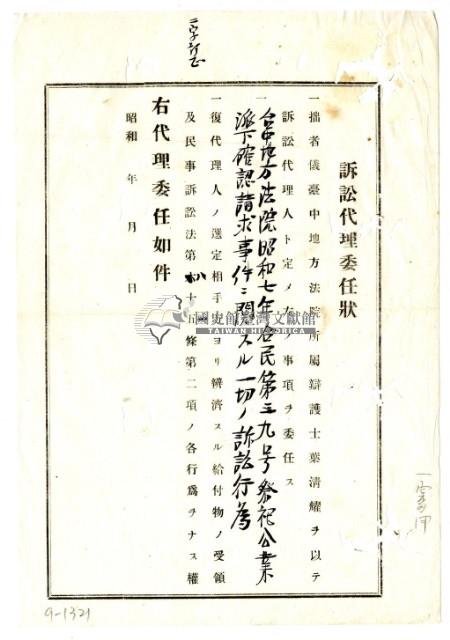 二字訂正
訴訟代理委任狀
一拙者儀臺中地方法院所屬辯護士葉清耀ヲ以テ
訴訟代理人ト定メ左ノ事項ヲ委任ス
一台中地方法院昭和七年合民第三九号祭祀公業
派下確認請求事件ニ関スル一切ノ訴訟行為
一復代理人ノ選定相手方ヨリ辨濟スル給付物ノ受領
及民事訴訟法第八十五條第二項ノ各行爲ヲナス權
右代理委任如件
昭和 年 月 日
國史館臺灣文獻館
TAIWAN HISTORICA
9-1321